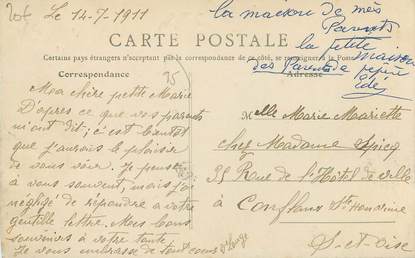 Le 14-7-1911
la maison de mes
Parents
la petite maison
des Parents de
CARTE POSTALE
Certains pays étrangers n'acceptent pas la correspondance de ce côté, se renseigner à la Poste
Correspondance
Adresse
35
Ma chère petite Marie
D'après ce que vos parents
m'ont dit; c'est bientôt
que j'aurais le plaisir
de vous voir. Je pense
à vous souvent, mais j'ai
négligé de répondre à votre
gentille lettre. Mes bons
souvenirs à votre tante
Je vous embrasse de tout cœur
Melle Marie Mariette
chez Madame
35 Rue de l'Hôtel de ville
à Conflans Ste Honorine
S-et-Oise